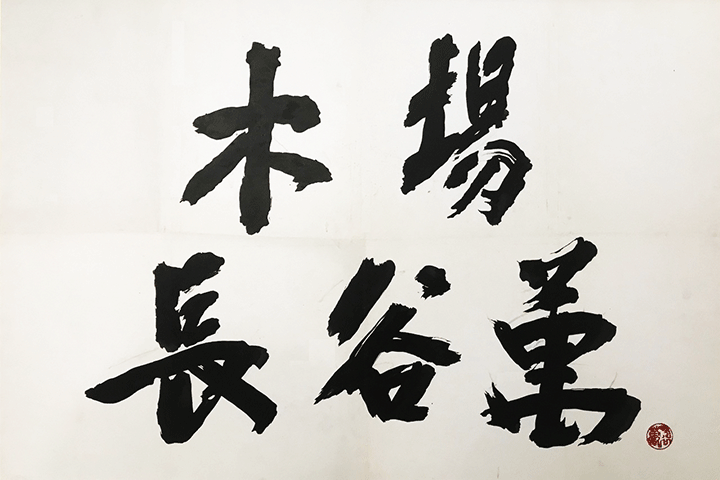 木場
長谷萬